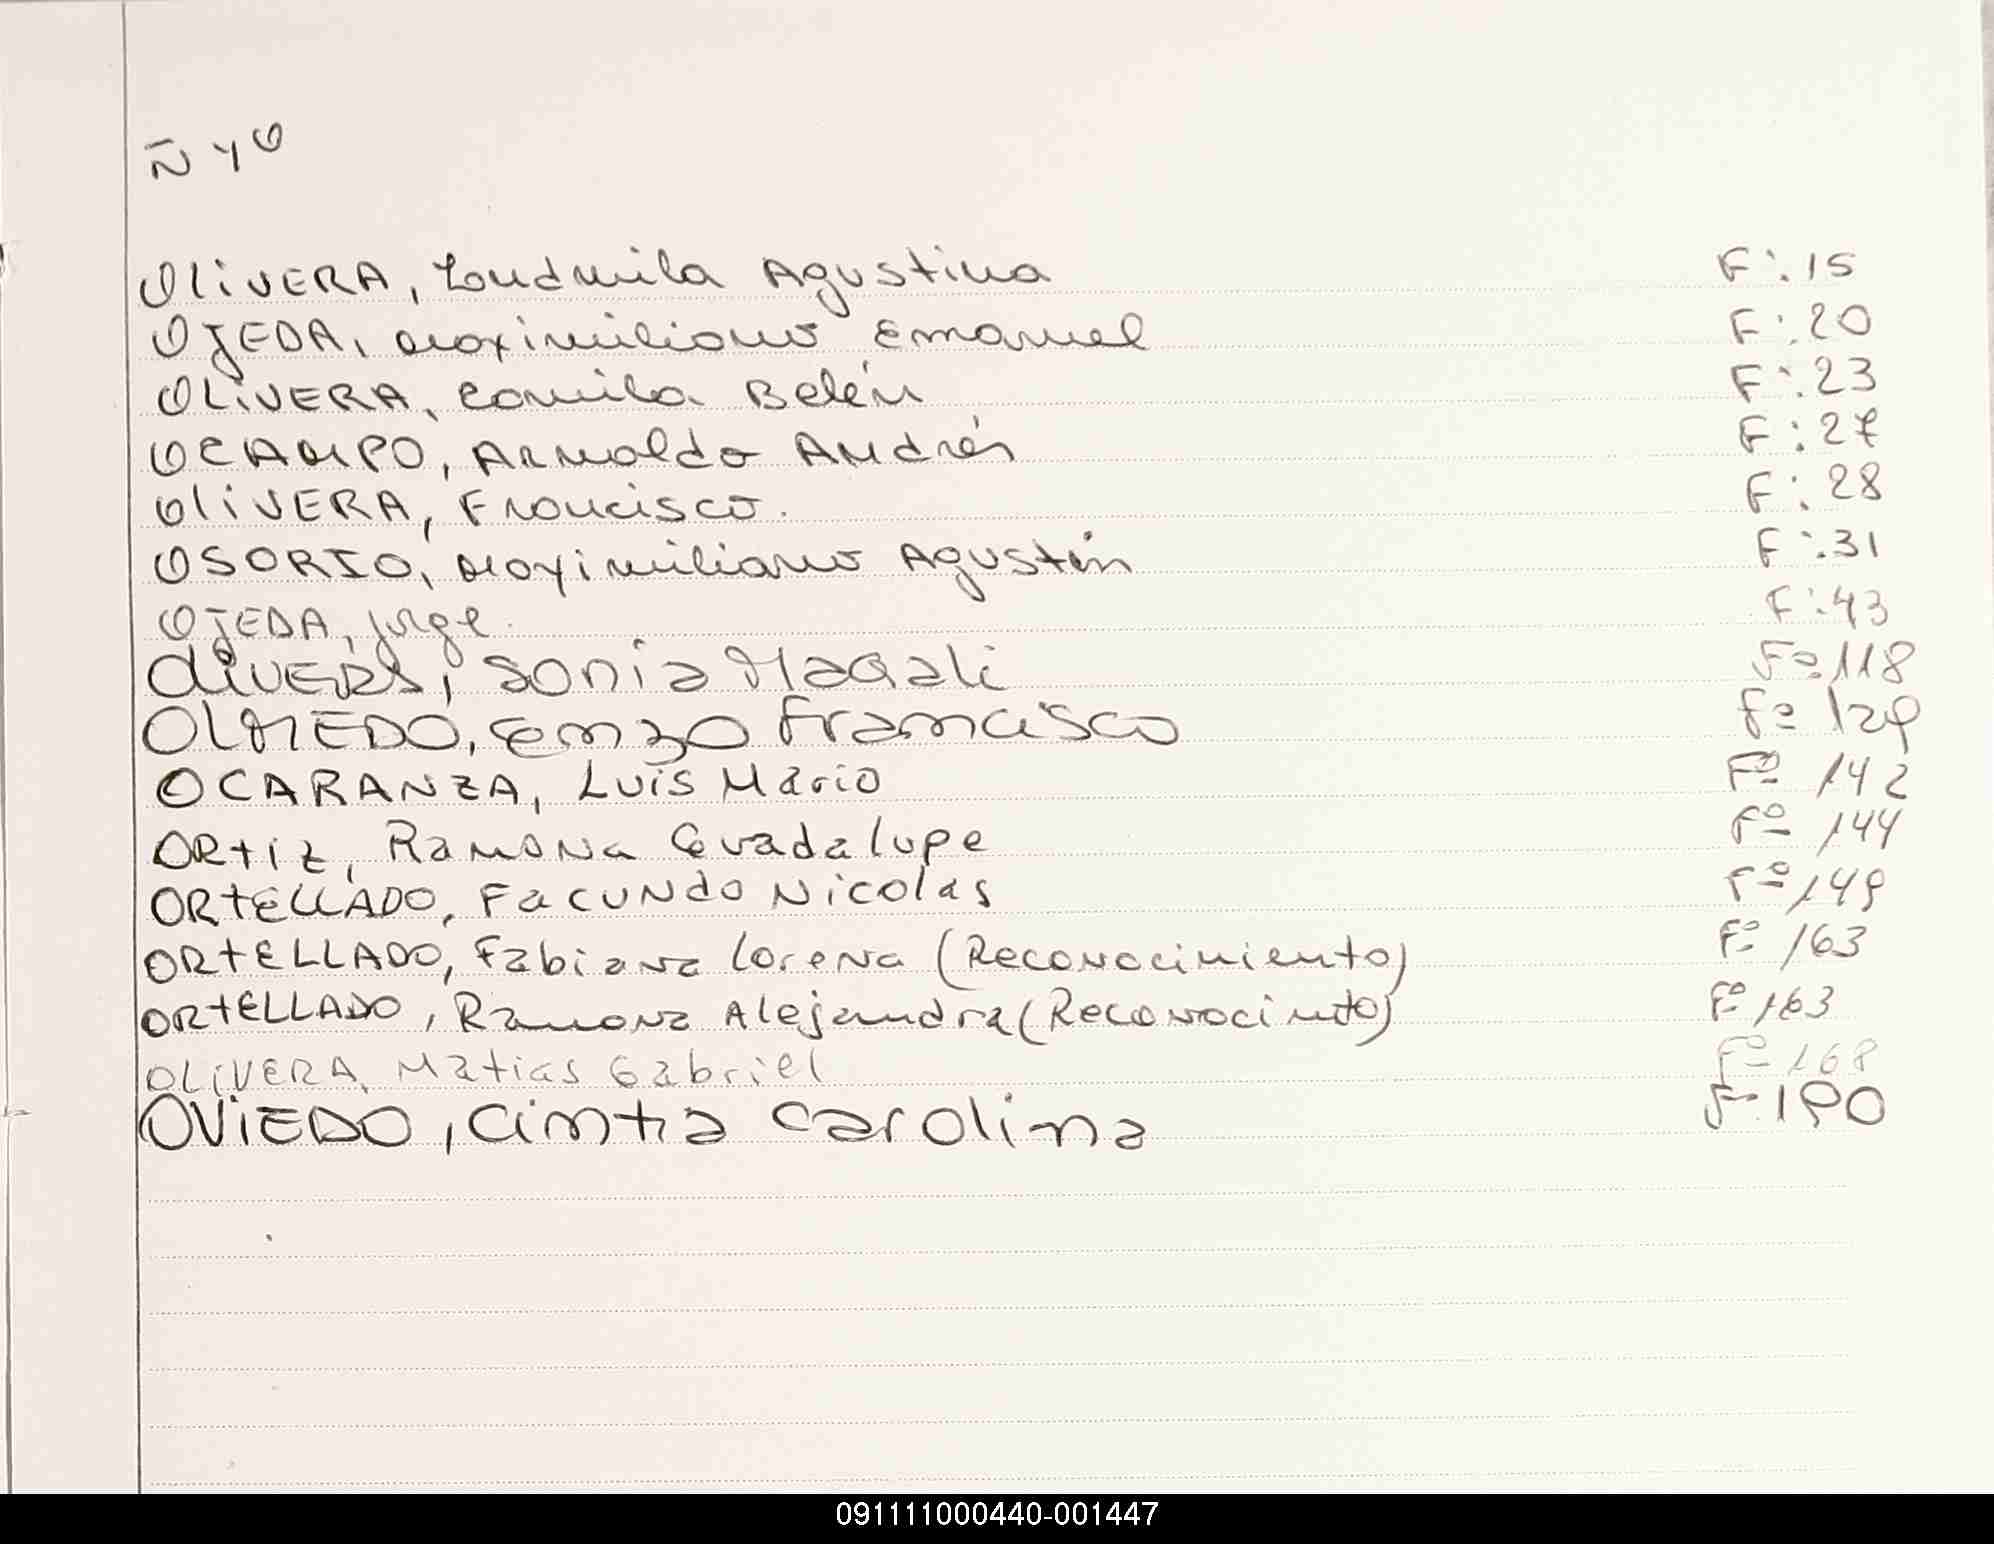 Ñ y O
OliVERA, Loudmila Agustina F:.15
OJEDA, Maximiliano Emanuel F:.20
OLiVERA, Camila Belén F:.23
OCAMPO, Arnaldo Andrés F:27
OliVERA, Francisco. F:.28
OSORIO, Maximiliano Agustín F:.31
OJEDA, jorge. F:.43
OLIVERA, Sonia Magali Fº 118
OLMEDO, Enzo Francisco Fº 129
OCARANZA, Luis Mario Fº 142
ORtiz, Ramona Guadalupe Fº 144
ORtELLADO, Facundo Nicolas Fº 149
ORtELLADO, Fabiana Lorena (Reconocimiento) Fº 163
ORtELLADO, Ramona Alejandra (Reconocimto) Fº 163
OLIVERA, Matias Gabriel Fº 168
OViEDO, Cintia Carolina Fº 190
091111000440-001447